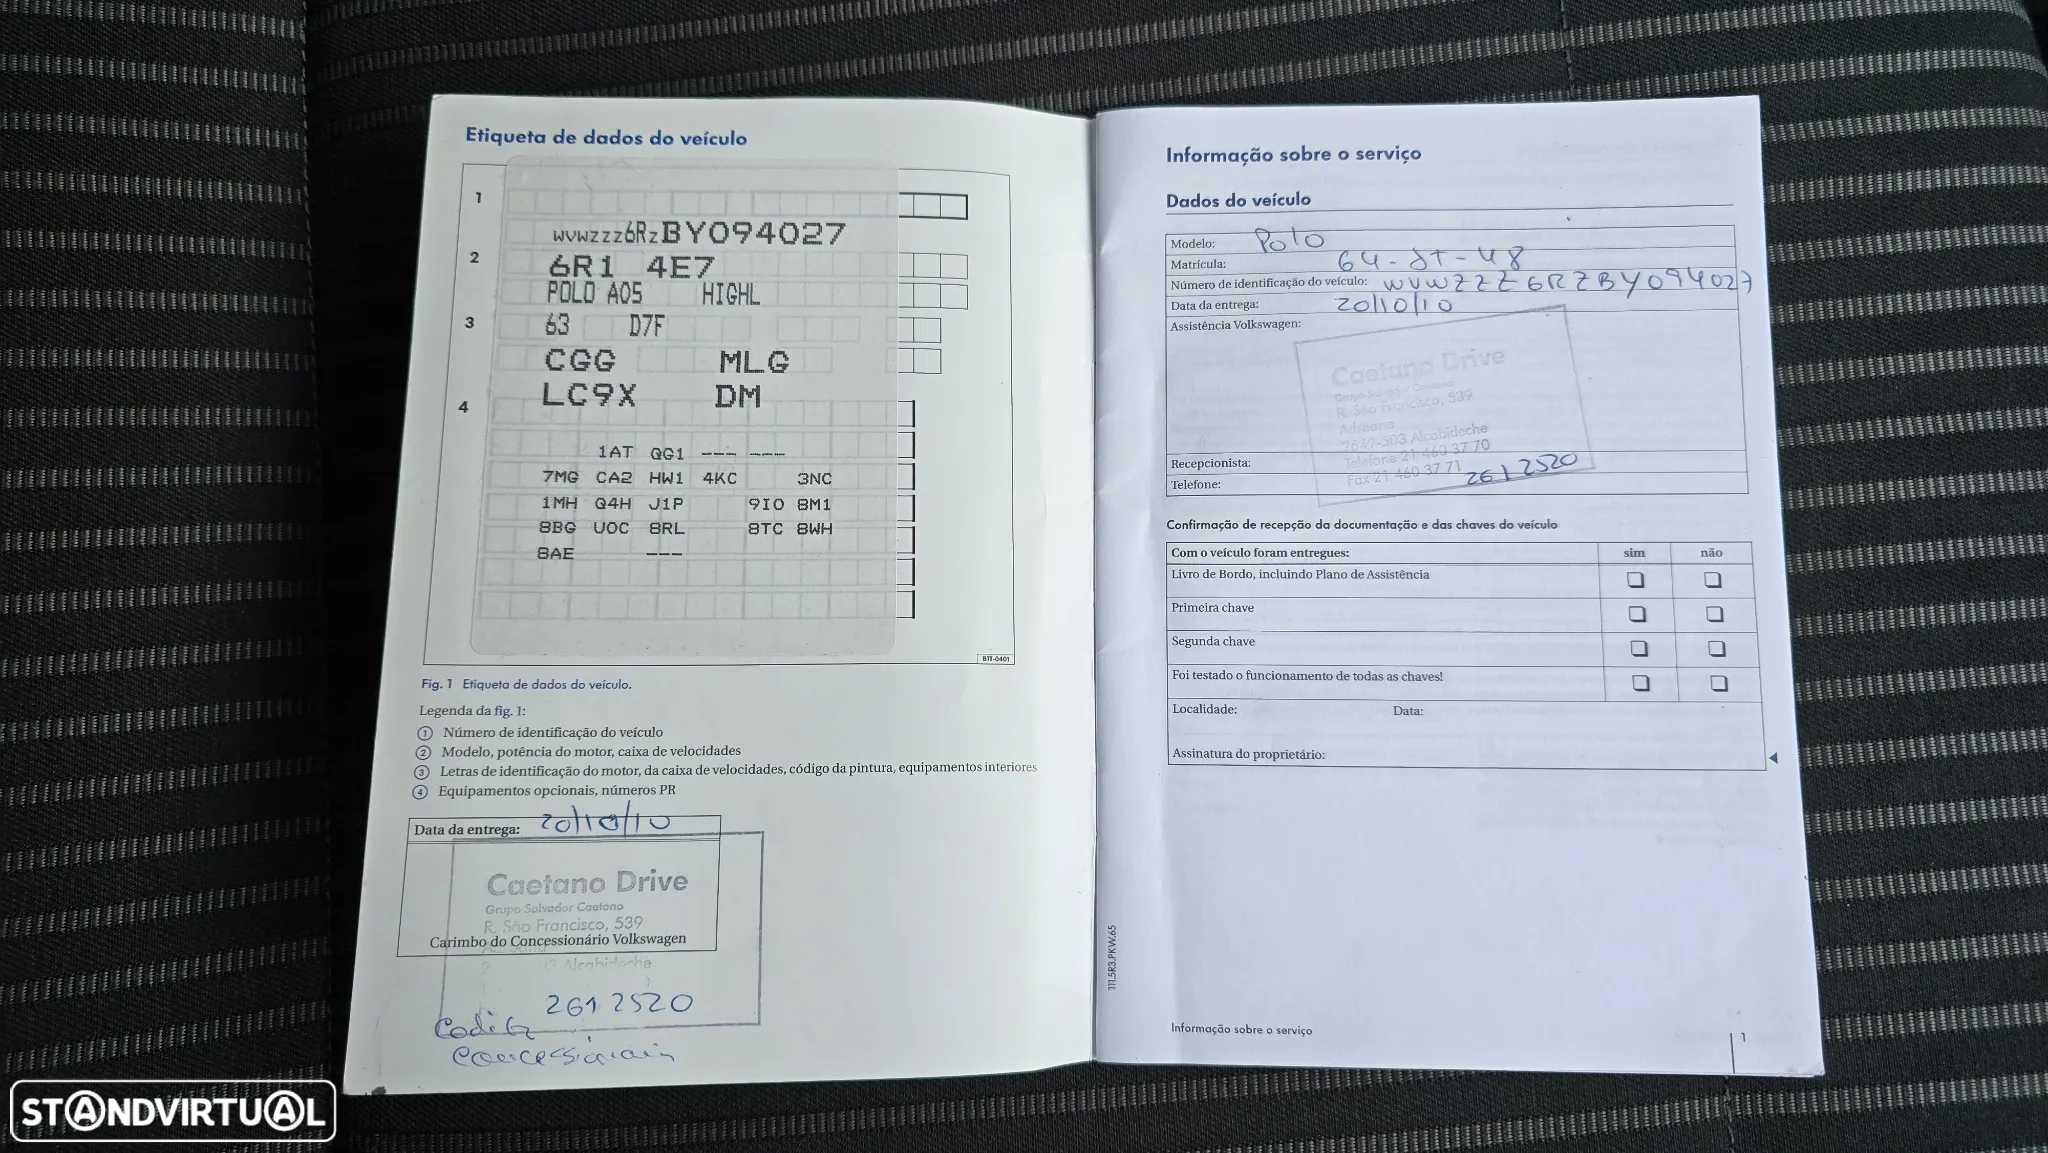 Etiqueta de dados do veículo
1
WVWZZZ6RZBY094027
2
6R1 4E7
POLO A05 HIGHL
3
63 D7F
CGG MLG
LC9X DM
4
1AT QG1 --- ---
7MG CA2 HW1 4KC 3NC
1MH Q4H J1P 9IO 8M1
8BG UOC 8RL 8TC 8WH
8AE ---
B1T-0401
Fig. 1 Etiqueta de dados do veículo.
Legenda da fig. 1:
1 Número de identificação do veículo
2 Modelo, potência do motor, caixa de velocidades
3 Letras de identificação do motor, da caixa de velocidades, código da pintura, equipamentos interiores
4 Equipamentos opcionais, números PR
Data da entrega: 20/10/10
Caetano Drive
Grupo Salvador Caetano
R. São Francisco, 539
Carimbo do Concessionário Volkswagen
Alcabideche
261 2520
Informação sobre o serviço
Dados do veículo
Modelo: Polo
Matrícula: 64-JT-48
Número de identificação do veículo: WVWZZZ6RZBY094027
Data da entrega: 20/10/10
Assistência Volkswagen:
Caetano Drive
Grupo Salvador Caetano
R. São Francisco, 539
Adroana
2647-503 Alcabideche
Telefone 21 460 37 70
Fax 21 460 37 71
Recepcionista:
261 2520
Telefone:
Confirmação de recepção da documentação e das chaves do veículo
Com o veículo foram entregues: sim não
Livro de Bordo, incluindo Plano de Assistência
Primeira chave
Segunda chave
Foi testado o funcionamento de todas as chaves!
Localidade: Data:
Assinatura do proprietário:
111.5R3.PKW.65
Informação sobre o serviço 1
STANDVIRTUAL